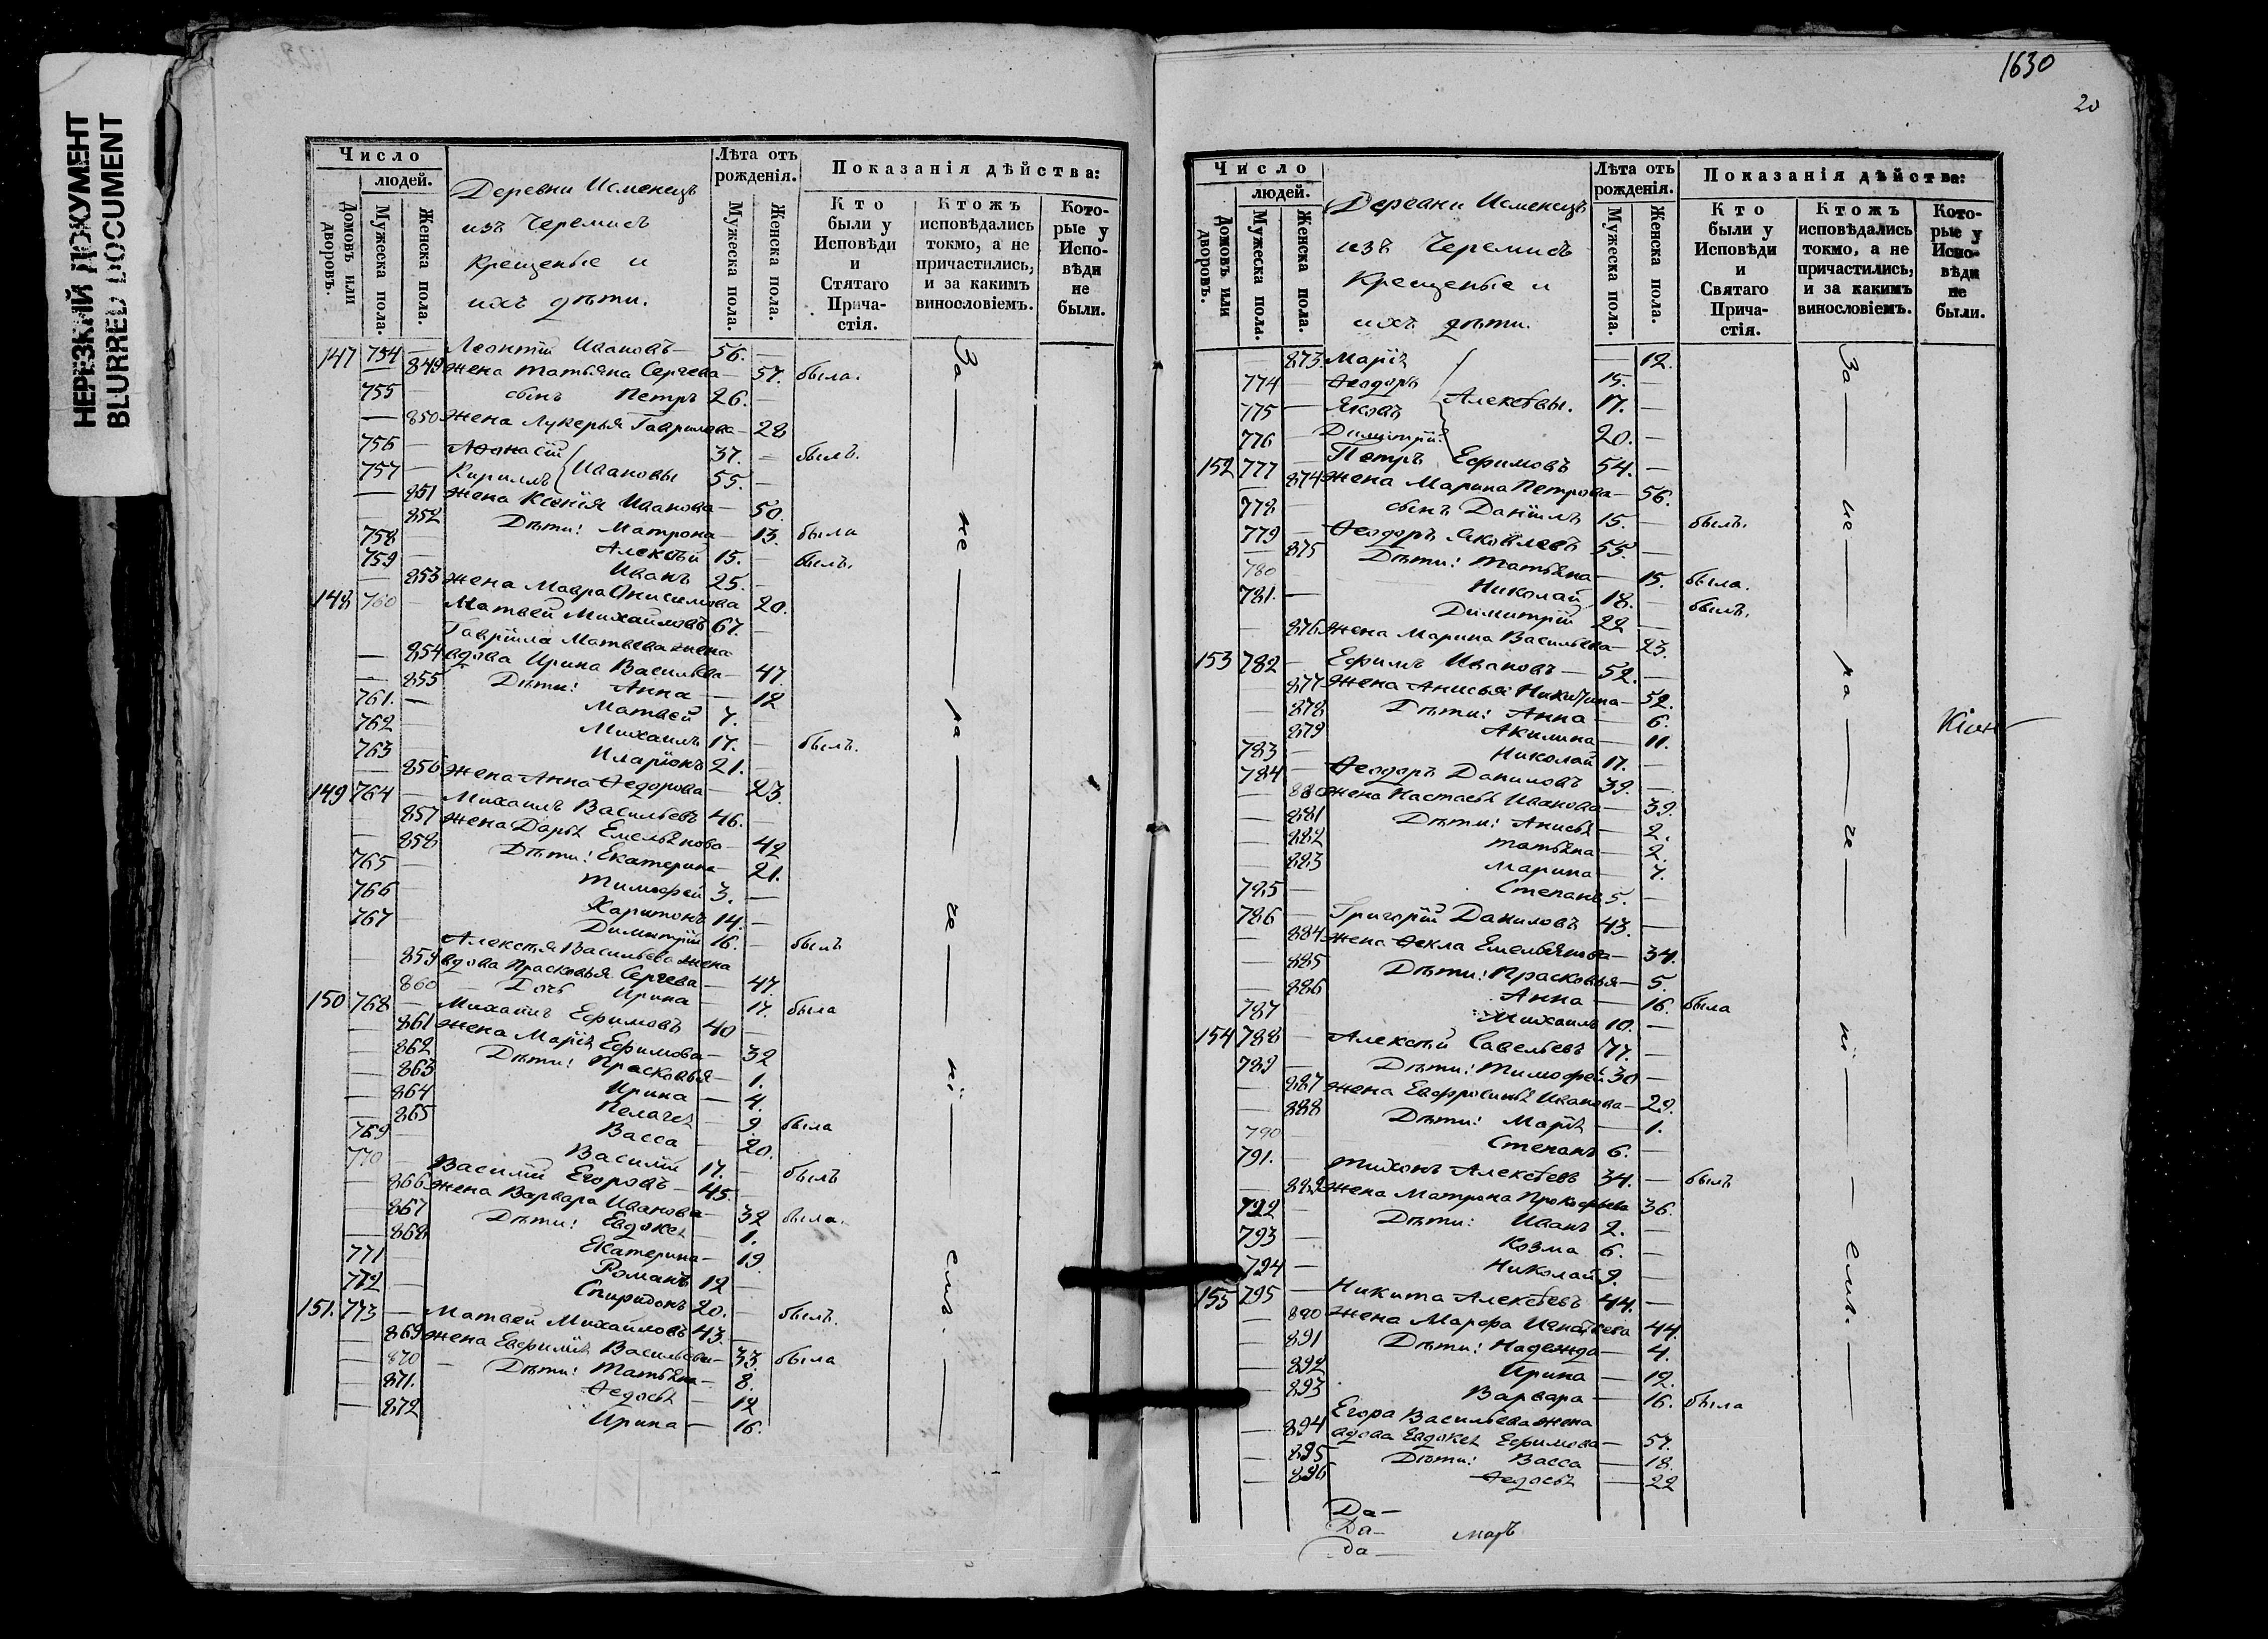 НЕРЕЗКИЙ ДОКУМЕНТ
BLURRED DOCUMENT
Число
людей.
Домовъ или дворовъ.
Мужеска пола.
Женска пола.
Деревни Исменецъ
изъ Черемисъ
Крещеные и
ихъ дѣти.
Лѣта отъ рожденія.
Мужеска пола.
Женска пола.
Показанія дѣйства:
Кто были у Исповѣди и Стятаго Прича-стія.
Ктожъ исповѣдались токмо, а не причастились, и за какимъ винословіемъ.
Кото-рые у Испо-вѣди не были.
147 754 — Леонтій Ивановъ — 56. —
849 жена Татьяна Сергѣева — 57. была.
755 сынъ Петръ 26. —
— 850 жена Лукерья Гаврилова — 28
756 — Аѳонасій 37. — былъ.
757 — Кириллъ Ивановы 55. —
— 851 жена Ксенія Иванова — 50.
852 Дѣти: Матрона — 13. была
758 — Алексѣй 15. — былъ.
759 — Иванъ 25. —
— 853 жена Мавра Онисимова 20.
148 760 — Матвей Михайловъ 67. —
Гавріила Матвеева жена
— 854 вдова Ирина Васильева — 47.
— 855 Дѣти: Анна — 12
761. — Матвей 7.
762 — Михаилъ 17. — былъ.
763 — Иларіонъ 21. —
— 856 жена Анна Ѳедорова — 23.
149 764 — Михаилъ Васильевъ 46. —
857 жена Дарья Емельянова — 42
— 858 Дѣти: Екатерина — 21.
765 — Тимофей 3. —
766 — Харитонъ 14. —
767 — Димитрій 16. — былъ
Алексѣя Васильева жена
— 859 вдова Прасковья Сергѣева — 47.
860 — Дочь Ирина — 17. была
150 768 — Михаилъ Ефимовъ 40 —
— 861 жена Марія Ефимова — 32
— 862 Дѣти: Прасковья — 1.
— 863 Ирина — 4.
— 864 Пелагея — 9. была
— 865 Васса — 20.
769 — Василій 17. — былъ
770 — Василій Егоровъ — 45. —
— 866 жена Варвара Иванова — 32 была.
— 867 Дѣти: Евдокея — 1.
— 868 Екатерина — 19.
771 — Романъ 12 —
772 — Спиридонъ 20. — былъ.
151. 773 — Матвей Михайловъ 43. —
— 869 жена Евфимія Васильева — 33. была
— 870 — Дѣти: Татьяна — 8.
— 871. Ѳедосья — 12
— 872 Ирина — 16.
За — не — ра — че — ні — емъ. —
1630
20
Число
людей.
Домовъ или дворовъ.
Мужеска пола.
Женска пола.
Деревни Исменецъ
изъ Черемисъ
Крещеные и
ихъ дѣти.
Лѣта отъ рожденія.
Мужеска пола.
Женска пола.
Показанія дѣйства:
Кто были у Исповѣди и Святаго Прича-стія.
Ктожъ исповѣдались токмо, а не причастились, и за какимъ винословіемъ.
Кото-рые у Испо-вѣди не были.
— 873. Марія — 12.
774 — Ѳеодоръ 15. —
775 — Яковъ Алексѣевы. 17. —
776 — Димитрій 20. —
152 777 — Петръ Ефимовъ 54. —
— 874 жена Марина Петрова — 56.
778 — сынъ Даніилъ 15. — былъ.
779 — Ѳеодоръ Яковлевъ 55. —
— 875 Дѣти: Татьяна — 15. была.
780 — Николай 18. — былъ.
781. — Димитрій 22 —
— 876 жена Марина Васильева — 23.
153 782 — Ефимъ Ивановъ — 52. —
— 877 жена Анисья Никитина — 52.
— 878 Дѣти: Анна — 6.
— 879 Акилина — 11.
783 — Николай 17. —
784 — Ѳеодоръ Даниловъ 39. —
— 880 жена Настасья Иванова — 39.
— 881 Дѣти: Анисья — 2.
— 882 Татьяна — 2.
— 883 Марина — 7.
785 — Степанъ 5. —
786 — Григорій Даниловъ 43. —
— 884 жена Ѳекла Емельянова — 34.
— 885 Дѣти: Прасковья — 5.
— 886 Анна — 16. была
787 Михаилъ 10. —
154 788 — Алексѣй Савельевъ 77. —
789 — Дѣти: Тимофей 30 —
— 887 жена Евфросинья Иванова — 29.
— 888 Дѣти: Марія — 1.
790 — Степанъ 6. —
791. — Тихонъ Алексѣевъ 34. — былъ
— 889 жена Матрона Прокофьева 36.
792 — Дѣти: Иванъ 2. —
793 — Козма 6. —
794 — Николай 9. —
155 795 — Никита Алексѣевъ 44. —
— 890 жена Марфа Игнатьева 44.
— 891 Дѣти: Надежда — 4.
— 892 Ирина — 12.
— 893 Варвара — 16. была
Егора Васильева жена
— 894 вдова Евдокея Ефимова — 57.
— 895 Дѣти: Васса — 18.
— 896 Ѳедосья — 22
За — не — ра — че — ні — емъ. —
Да —
Да —
Да —